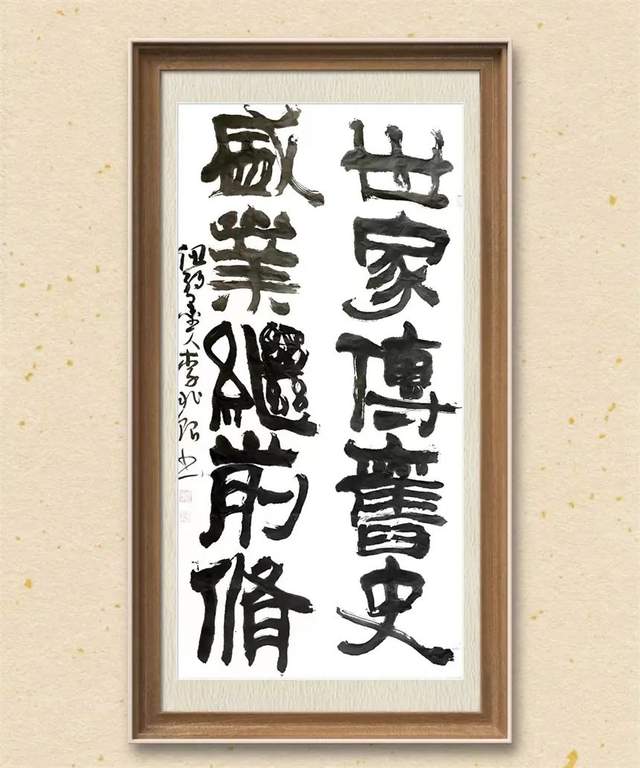 世家傳舊史
盛業繼前脩
人李